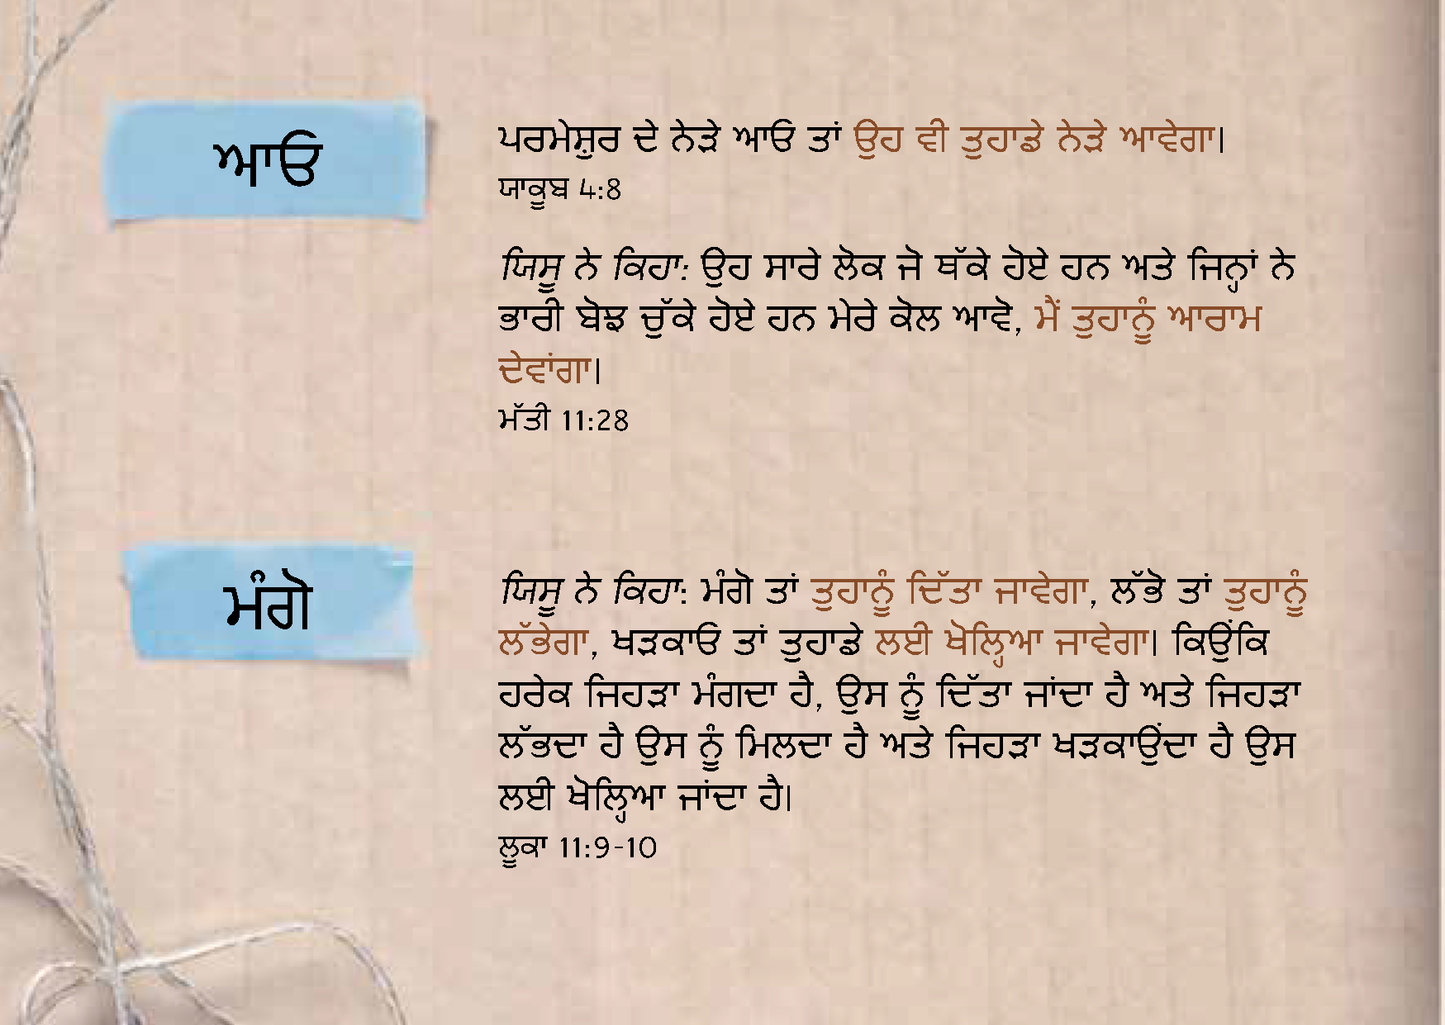 ਆਓ
ਪਰਮੇਸ਼ੁਰ ਦੇ ਨੇੜੇ ਆਓ ਤਾਂ ਉਹ ਵੀ ਤੁਹਾਡੇ ਨੇੜੇ ਆਵੇਗਾ।
ਯਾਕੂਬ 4:8
ਯਿਸੂ ਨੇ ਕਿਹਾ: ਉਹ ਸਾਰੇ ਲੋਕ ਜੋ ਥੱਕੇ ਹੋਏ ਹਨ ਅਤੇ ਜਿਨ੍ਹਾਂ ਨੇ
ਭਾਰੀ ਬੋਝ ਚੁੱਕੇ ਹੋਏ ਹਨ ਮੇਰੇ ਕੋਲ ਆਵੋ, ਮੈਂ ਤੁਹਾਨੂੰ ਆਰਾਮ
ਦੇਵਾਂਗਾ।
ਮੱਤੀ 11:28
ਮੰਗੋ
ਯਿਸੂ ਨੇ ਕਿਹਾ: ਮੰਗੋ ਤਾਂ ਤੁਹਾਨੂੰ ਦਿੱਤਾ ਜਾਵੇਗਾ, ਲੱਭੋ ਤਾਂ ਤੁਹਾਨੂੰ
ਲੱਭੇਗਾ, ਖੜਕਾਓ ਤਾਂ ਤੁਹਾਡੇ ਲਈ ਖੋਲ੍ਹਿਆ ਜਾਵੇਗਾ। ਕਿਉਂਕਿ
ਹਰੇਕ ਜਿਹੜਾ ਮੰਗਦਾ ਹੈ, ਉਸ ਨੂੰ ਦਿੱਤਾ ਜਾਂਦਾ ਹੈ ਅਤੇ ਜਿਹੜਾ
ਲੱਭਦਾ ਹੈ ਉਸ ਨੂੰ ਮਿਲਦਾ ਹੈ ਅਤੇ ਜਿਹੜਾ ਖੜਕਾਉਂਦਾ ਹੈ ਉਸ
ਲਈ ਖੋਲ੍ਹਿਆ ਜਾਂਦਾ ਹੈ।
ਲੂਕਾ 11:9-10